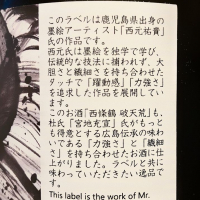 このラベルは鹿児島県出身の
墨絵アーティスト「西元祐貴」
氏の作品です。
西元氏は墨絵を独学で学び、
伝統的な技法に捕われず、大
胆さと繊細さを持ち合わせた
タッチで「躍動感」「力強さ」
を追求した作品を展開してい
ます。
このお酒「西條鶴 破天荒」も、
杜氏「宮地充宜」氏がもっと
も得意とする広島伝承の味わ
いである「力強さ」と「繊細
さ」を持ち合わせたお酒に仕
上がりました。ラベルと共に
味わっていただきたい逸品で
す。
This label is the work of Mr.